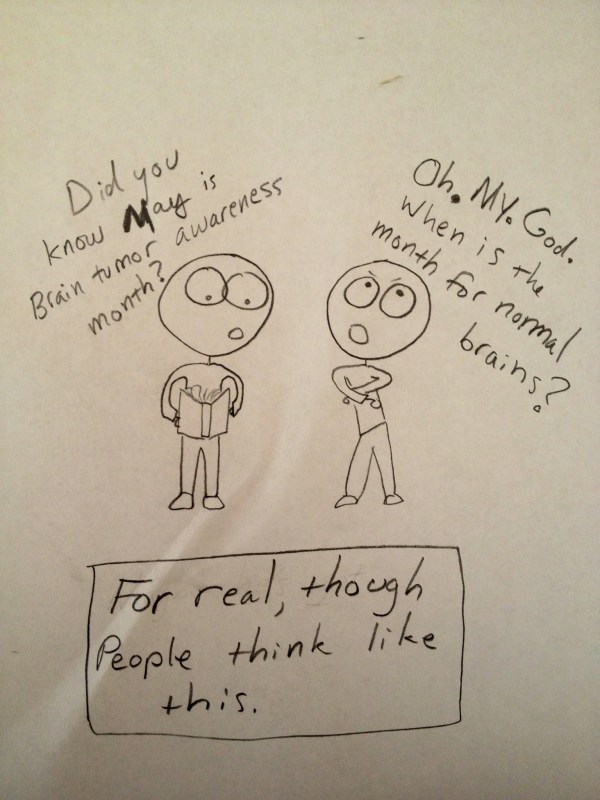 Did you
know May is
Brain tumor awareness
month?
Oh. My. God.
When is the
month for normal
brains?
For real, though
People think like
this.